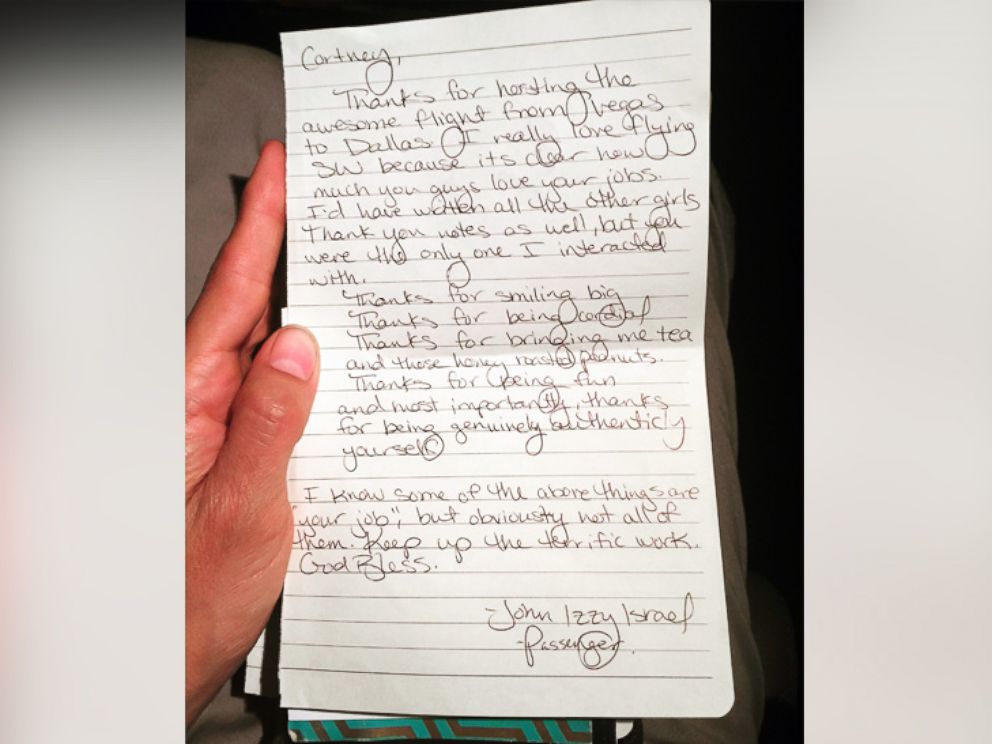 Cortney,
Thanks for hosting the
awesome flight from Vegas
to Dallas. I really love flying
SW because its clear how
much you guys love your jobs.
I'd have written all the other girls
Thank you notes as well, but you
were the only one I interacted
with.
Thanks for smiling big
Thanks for being cordial
Thanks for bringing me tea
and those honey roasted peanuts.
Thanks for being fun
and most importantly, thanks
for being genuinely authenticly
yourself.
I know some of the above things are
"your job", but obviously not all of
them. Keep up the terrific work.
God Bless.
-John Izzy Israel
-Passenger.